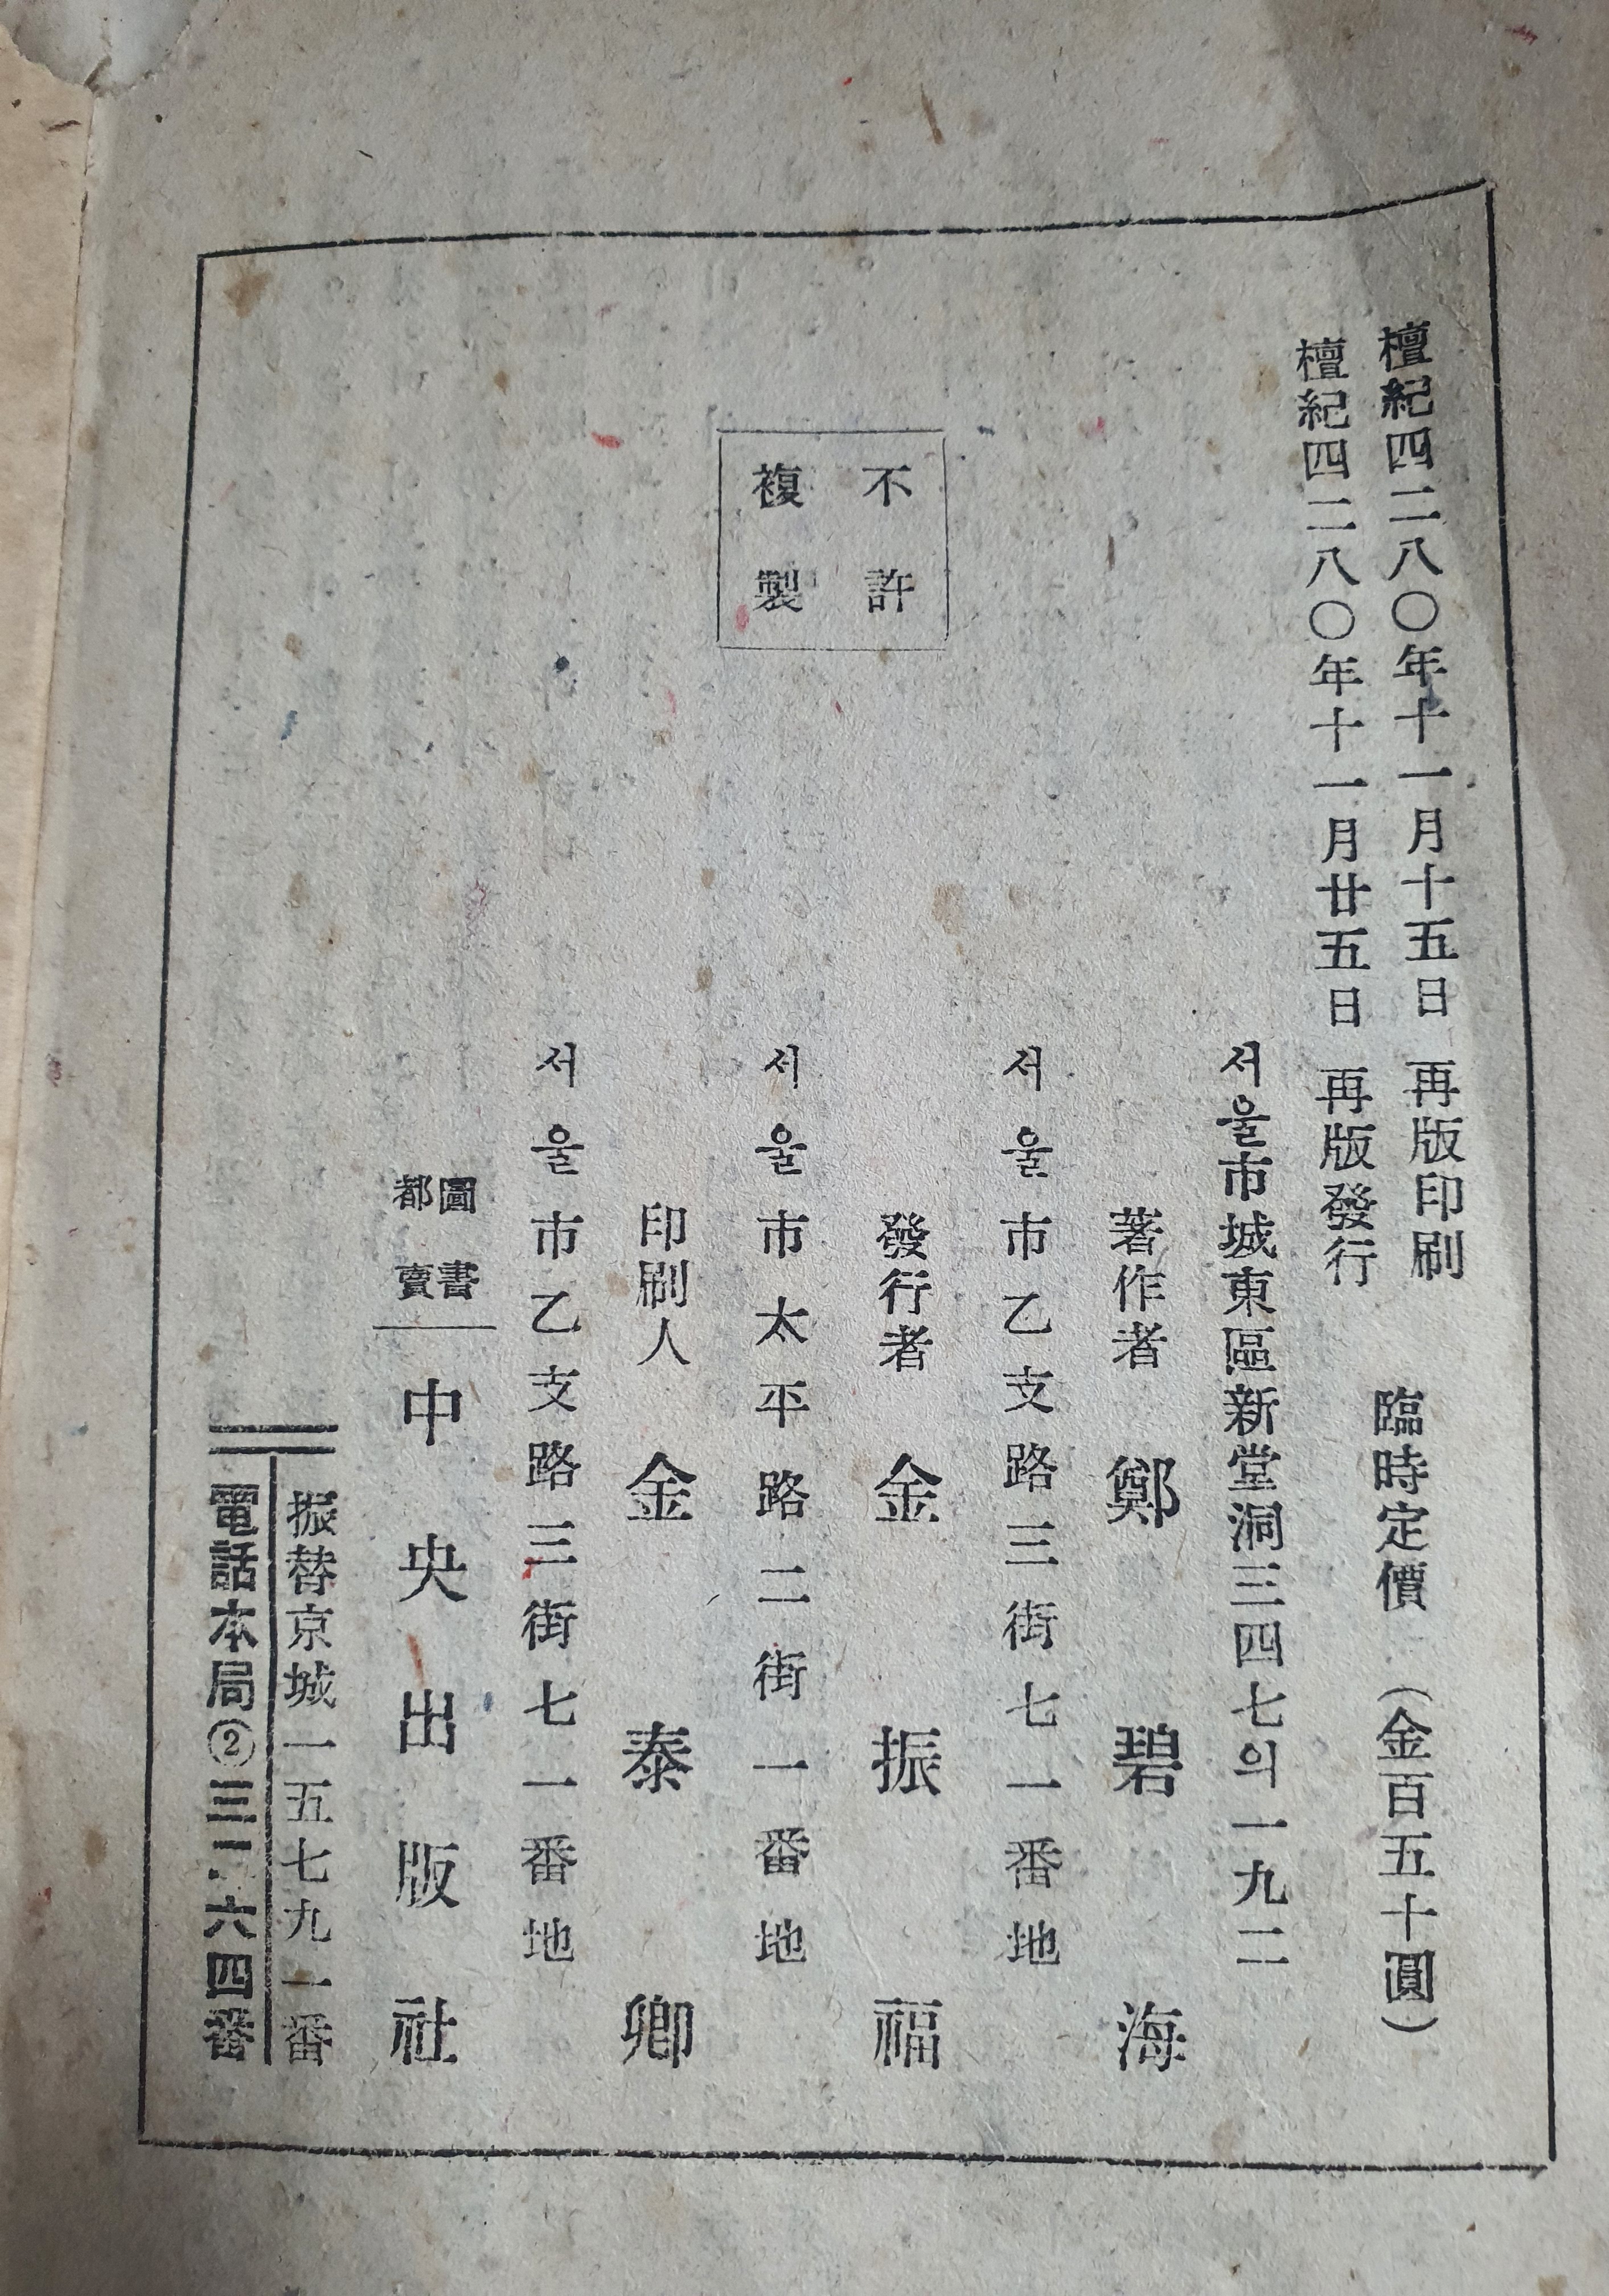 檀紀四二八〇年十一月十五日 再版印刷
檀紀四二八〇年十一月廿五日 再版發行
臨時定價 (金百五十圓)
서울市城東區新堂洞三四七의一九二
著作者 鄭碧海
서울市乙支路三街七一番地
不許
複製
發行者 金振福
서울市太平路二街一番地
印刷人 金泰卿
서울市乙支路三街七一番地
圖書
都賣
中央出版社
振替京城一五七九一番
電話本局②三二六四番